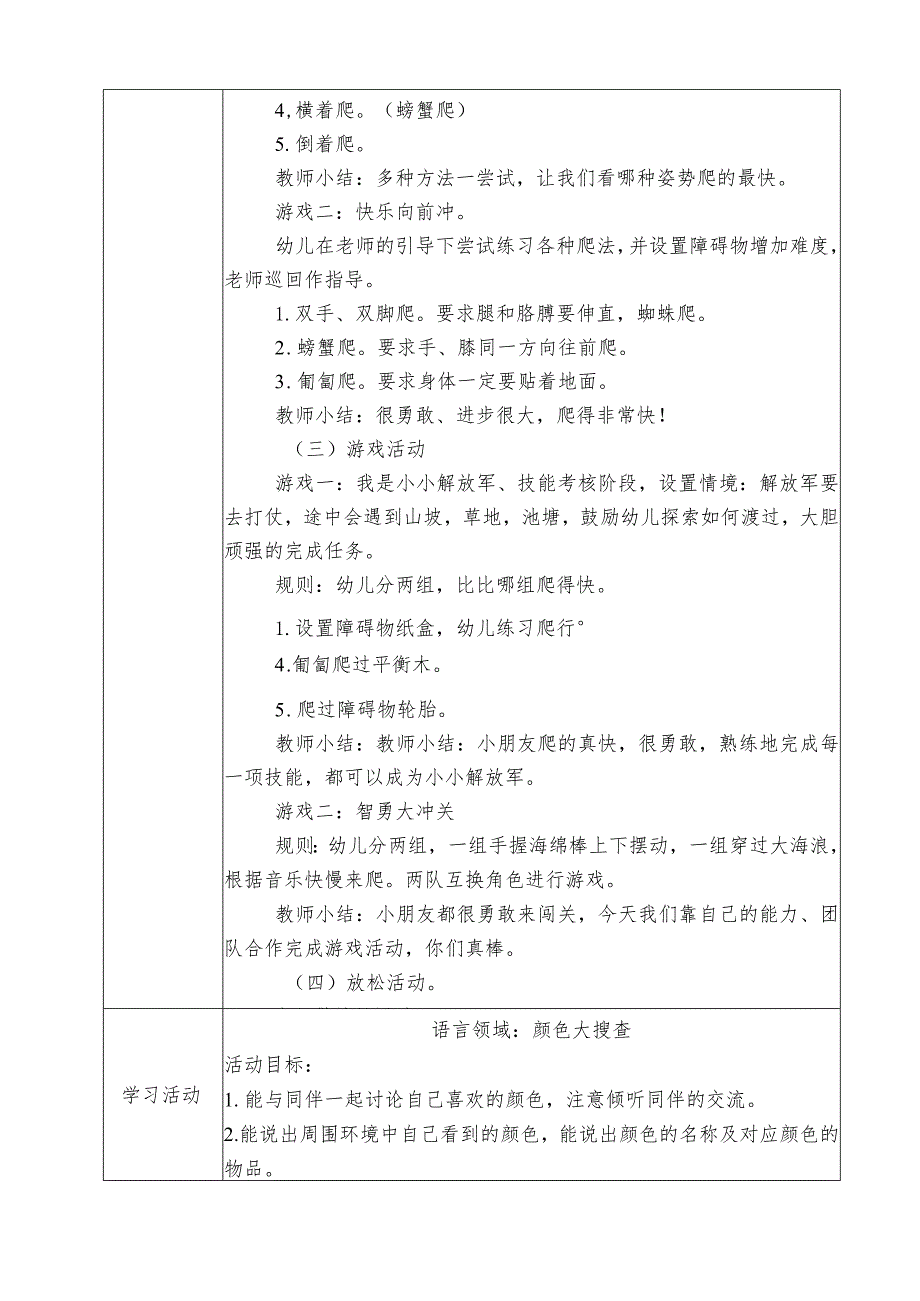 4,横着爬。（螃蟹爬）
5. 倒着爬。
教师小结：多种方法一尝试，让我们看哪种姿势爬的最快。
游戏二：快乐向前冲。
幼儿在老师的引导下尝试练习各种爬法，并设置障碍物增加难度，
老师巡回作指导。
1. 双手、双脚爬。要求腿和胳膊要伸直，蜘蛛爬。
2. 螃蟹爬。要求手、膝同一方向往前爬。
3. 匍匐爬。要求身体一定要贴着地面。
教师小结：很勇敢、进步很大，爬得非常快！
（三）游戏活动
游戏一：我是小小解放军、技能考核阶段，设置情境：解放军要
去打仗，途中会遇到山坡，草地，池塘，鼓励幼儿探索如何渡过，大胆
顽强的完成任务。
规则：幼儿分两组，比比哪组爬得快。
1. 设置障碍物纸盒，幼儿练习爬行°
4.匍匐爬过平衡木。
5. 爬过障碍物轮胎。
教师小结：教师小结：小朋友爬的真快，很勇敢，熟练地完成每
一项技能，都可以成为小小解放军。
游戏二：智勇大冲关
规则：幼儿分两组，一组手握海绵棒上下摆动，一组穿过大海浪，
根据音乐快慢来爬。两队互换角色进行游戏。
教师小结：小朋友都很勇敢来闯关，今天我们靠自己的能力、团
队合作完成游戏活动，你们真棒。
（四）放松活动。
学习活动
语言领域：颜色大搜查
活动目标：
1. 能与同伴一起讨论自己喜欢的颜色，注意倾听同伴的交流。
2.能说出周围环境中自己看到的颜色，能说出颜色的名称及对应颜色的
物品。